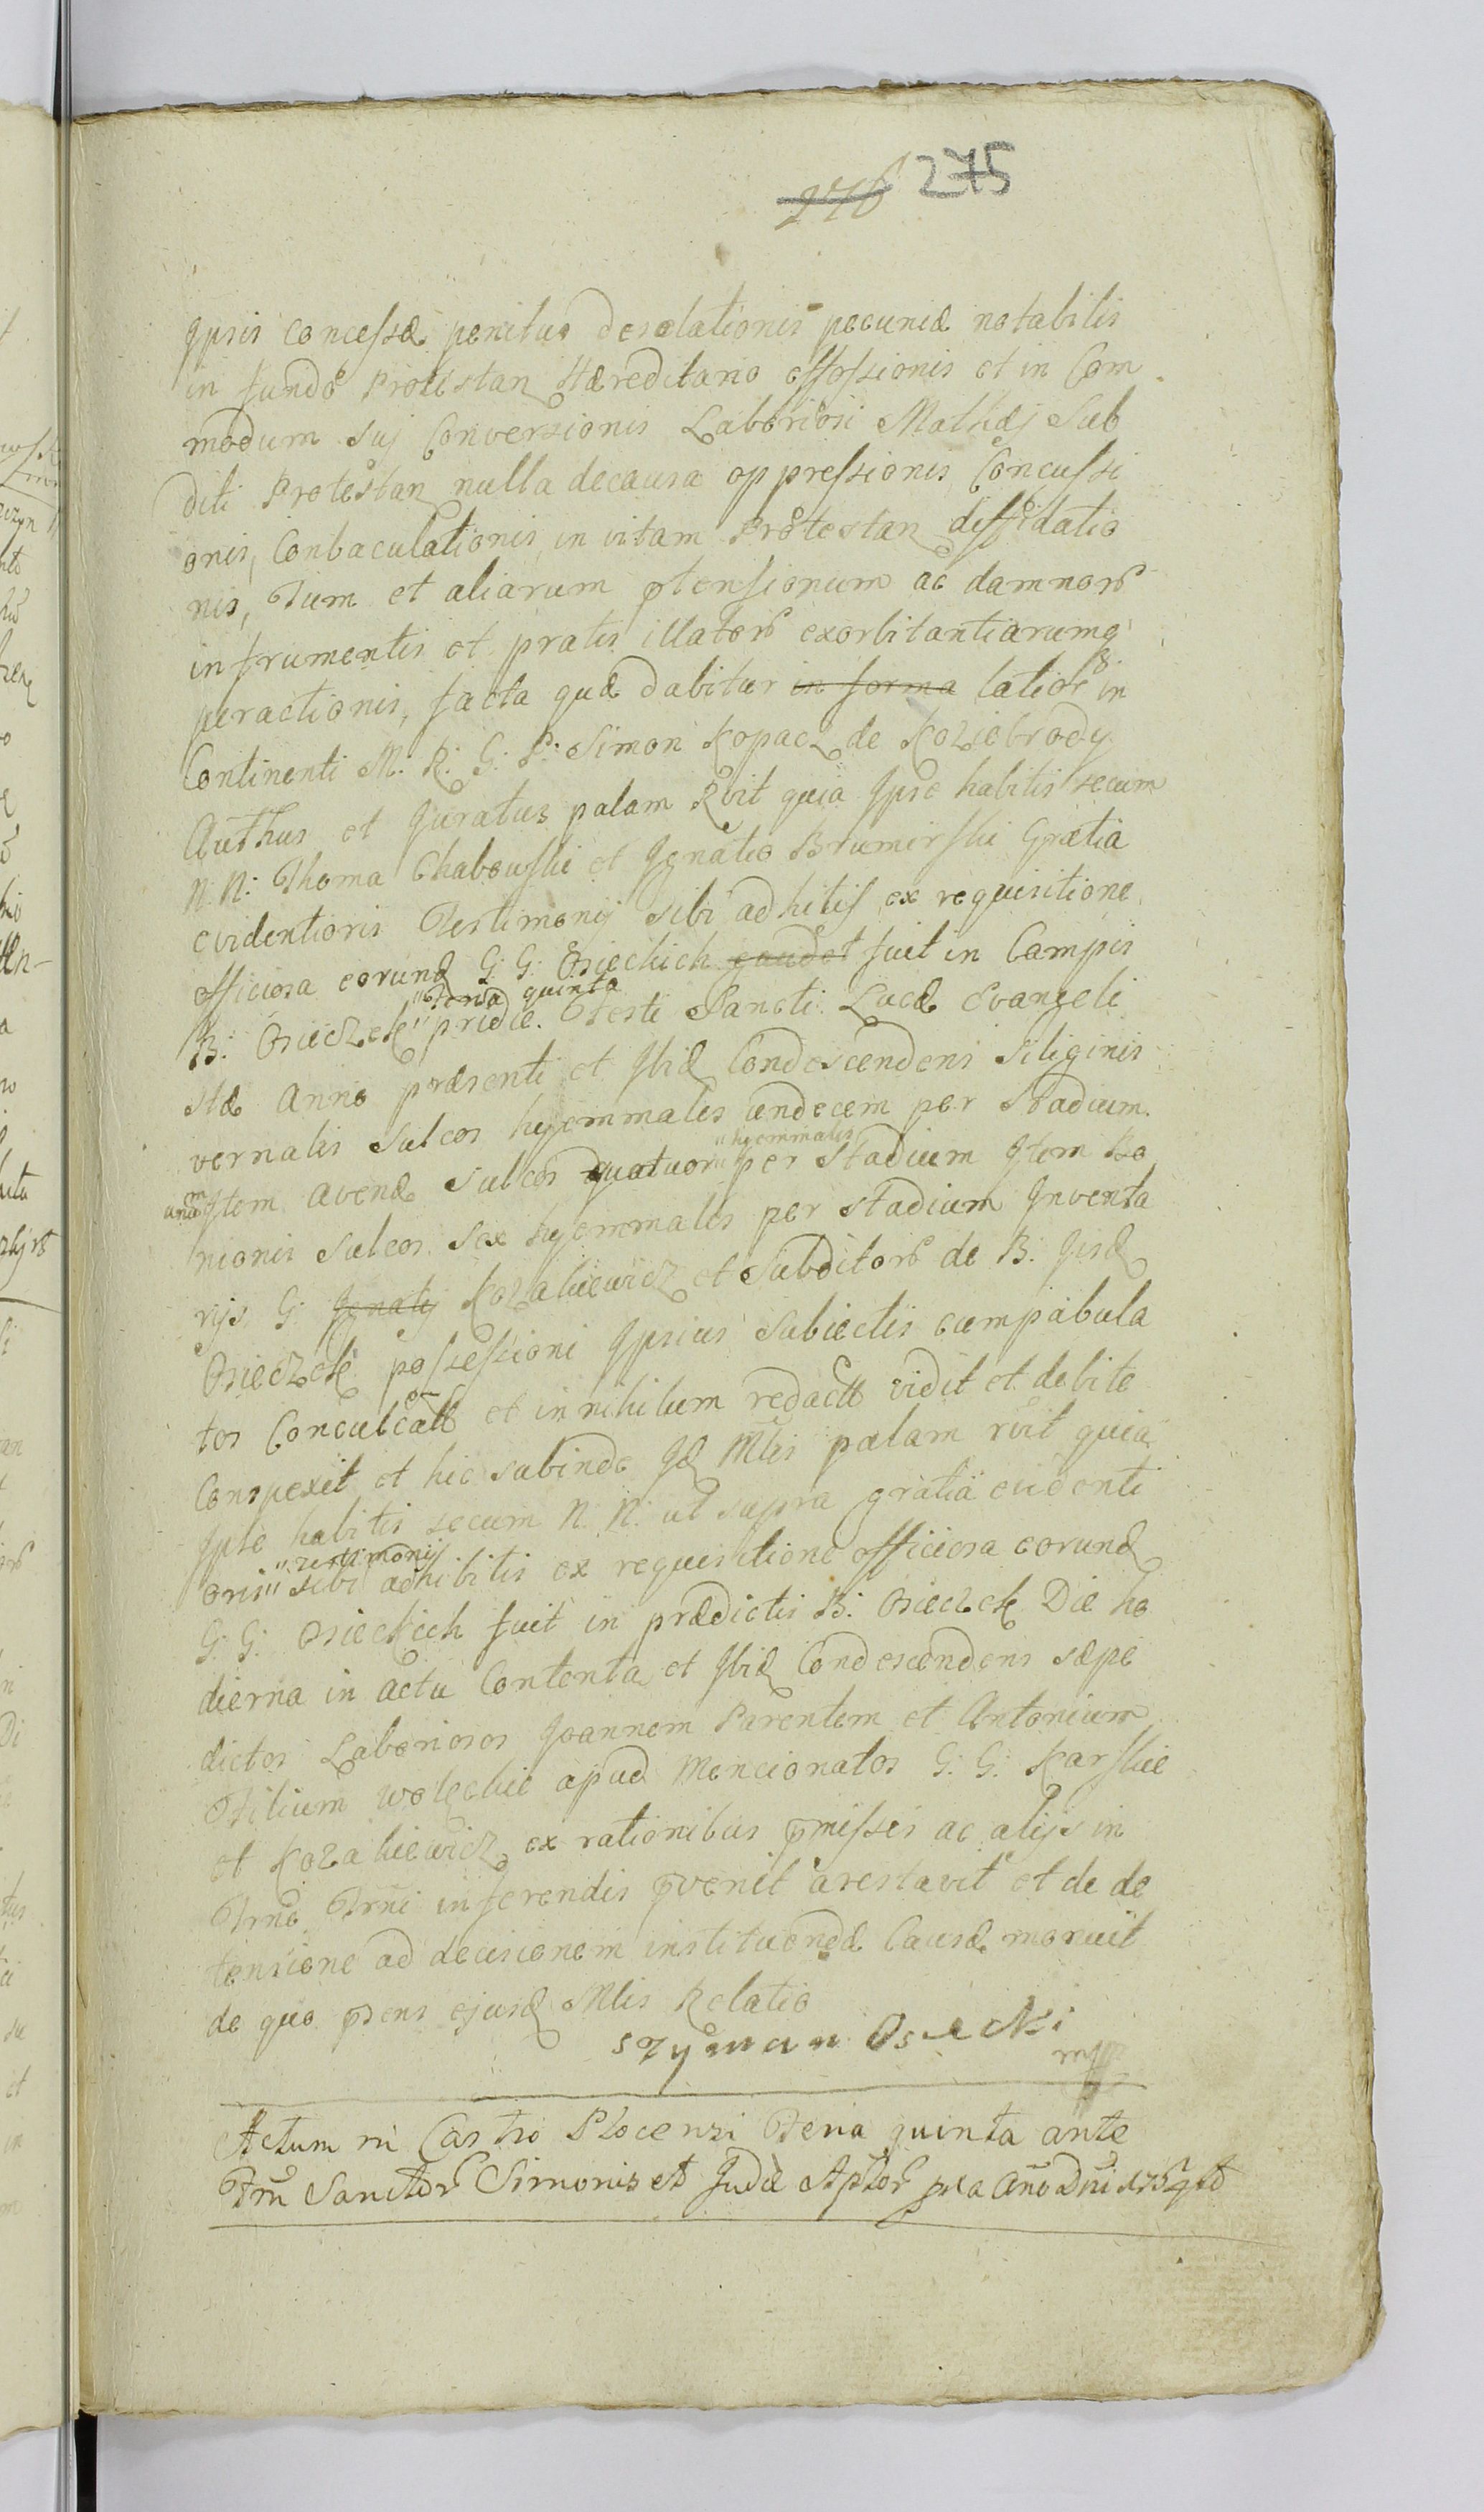 276 275
Ipsis concessæ penitus desolationis pecuniæ notabilis
in fundo Protestan Hæreditario effossionis et in Com
modum suj Conversionis Laboriosi Mathæj Sub
diti Protestan nulla decausa oppressionis, Concussi
onis, Conbaculationis, in vitam Protestan diffidatio
nis, Tum et aliarum ptensionum ac damnor
in frumentis et pratis illator exorbitantiarumq
peractionis, facta quæ dabitur in forma latior in
Continenti M: R: G: P: Simon Kopacz de Koziebrody
Authus et Juratus palam Rvit quia Ipse habitis secum
N: N: Thoma Chabowski et Ignatio Brumirski Gratia
evidentioris Testimonij sibi adhitis ex requisitione
officiosa eorund G: G: Osieckich gaudet fuit in Campis
"Feria quinta
B: Osieczek" pridie Festi Sancti Lucæ Evangeli
stæ Anno præsenti et Ibid Condescendens Siliginis
vernalis Sulcos hyemmales undecem per Stadium.
"hyemmales
unam Item avenæ Sulcos quatuor" per Stadium Item Bo
nionis Sulcos sex hyemmales per stadium Inventa
rijs G: Ignatij Kozakiewicz et Subditor de B: Gisd
Osieczek possessioni Ipsius Subiectis cumpabula
tos Conculcatt et in nihilum redactt vidit et debite
Conspexit et hic subinde Id Mlis palam rvit quia
Ipse habitis secum N: N: ut supra gratia evidenti
"Testimonij
oris" sibi adhibitis ex requisitione officiosa eorund
G: G: Osieckich fuit in prædictis B: Osieczek Die ho
dierna in actu Contenta et Ibid Condescendens sæpe
dictos Laboriosos Joannem Parentem et Antonium
Filium Woleckie apud Mencionatos G: G: Karskie
et Kozakiewicz ex rationibus pmissis ac alijs in
Trno Trni inferendis pvenit arestavit et de de
tensione ad decisionem instituendæ Causæ monuit
de quo psens ejusd Mlis Relatio
Szyman Osiecki
mpp
Actum in Castro Plocensi Feria quinta ante
Ftm Sanctor Simonis et Judæ Aptor pxa Año Dni